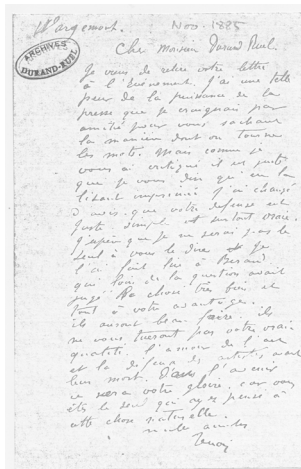 Wargemont.
Nov. 1885
ARCHIVES
DURAND-RUEL
Cher Monsieur Durand Ruel.
Je viens de relire votre lettre
à l'Evénement. J'ai une telle
peur de la puissance de la
presse que je craignais par
amitié pour vous sachant
la manière dont on tourne
les mots. Mais comme je
vous ai critiqué il est juste
que je vous dise qu'en la
lisant imprimée j'ai changé
d'avis. que votre défense est
juste simple et surtout vraie.
J'espère que je ne serai pas le
seul à vous le dire. Je
l'ai fait lire à Berard
qui loin de la question avait
jugé la chose très bien et
tout à votre avantage.
ils auront beau faire, ils
ne vous tueront pas votre vraie
qualité. l'amour de l'art
et la défense des artistes avant
leur mort. Dans l'avenir
ce sera votre gloire, car vous
êtes le seul qui ayez pensé à
cette chose naturelle.
mille amitiés
Renoir